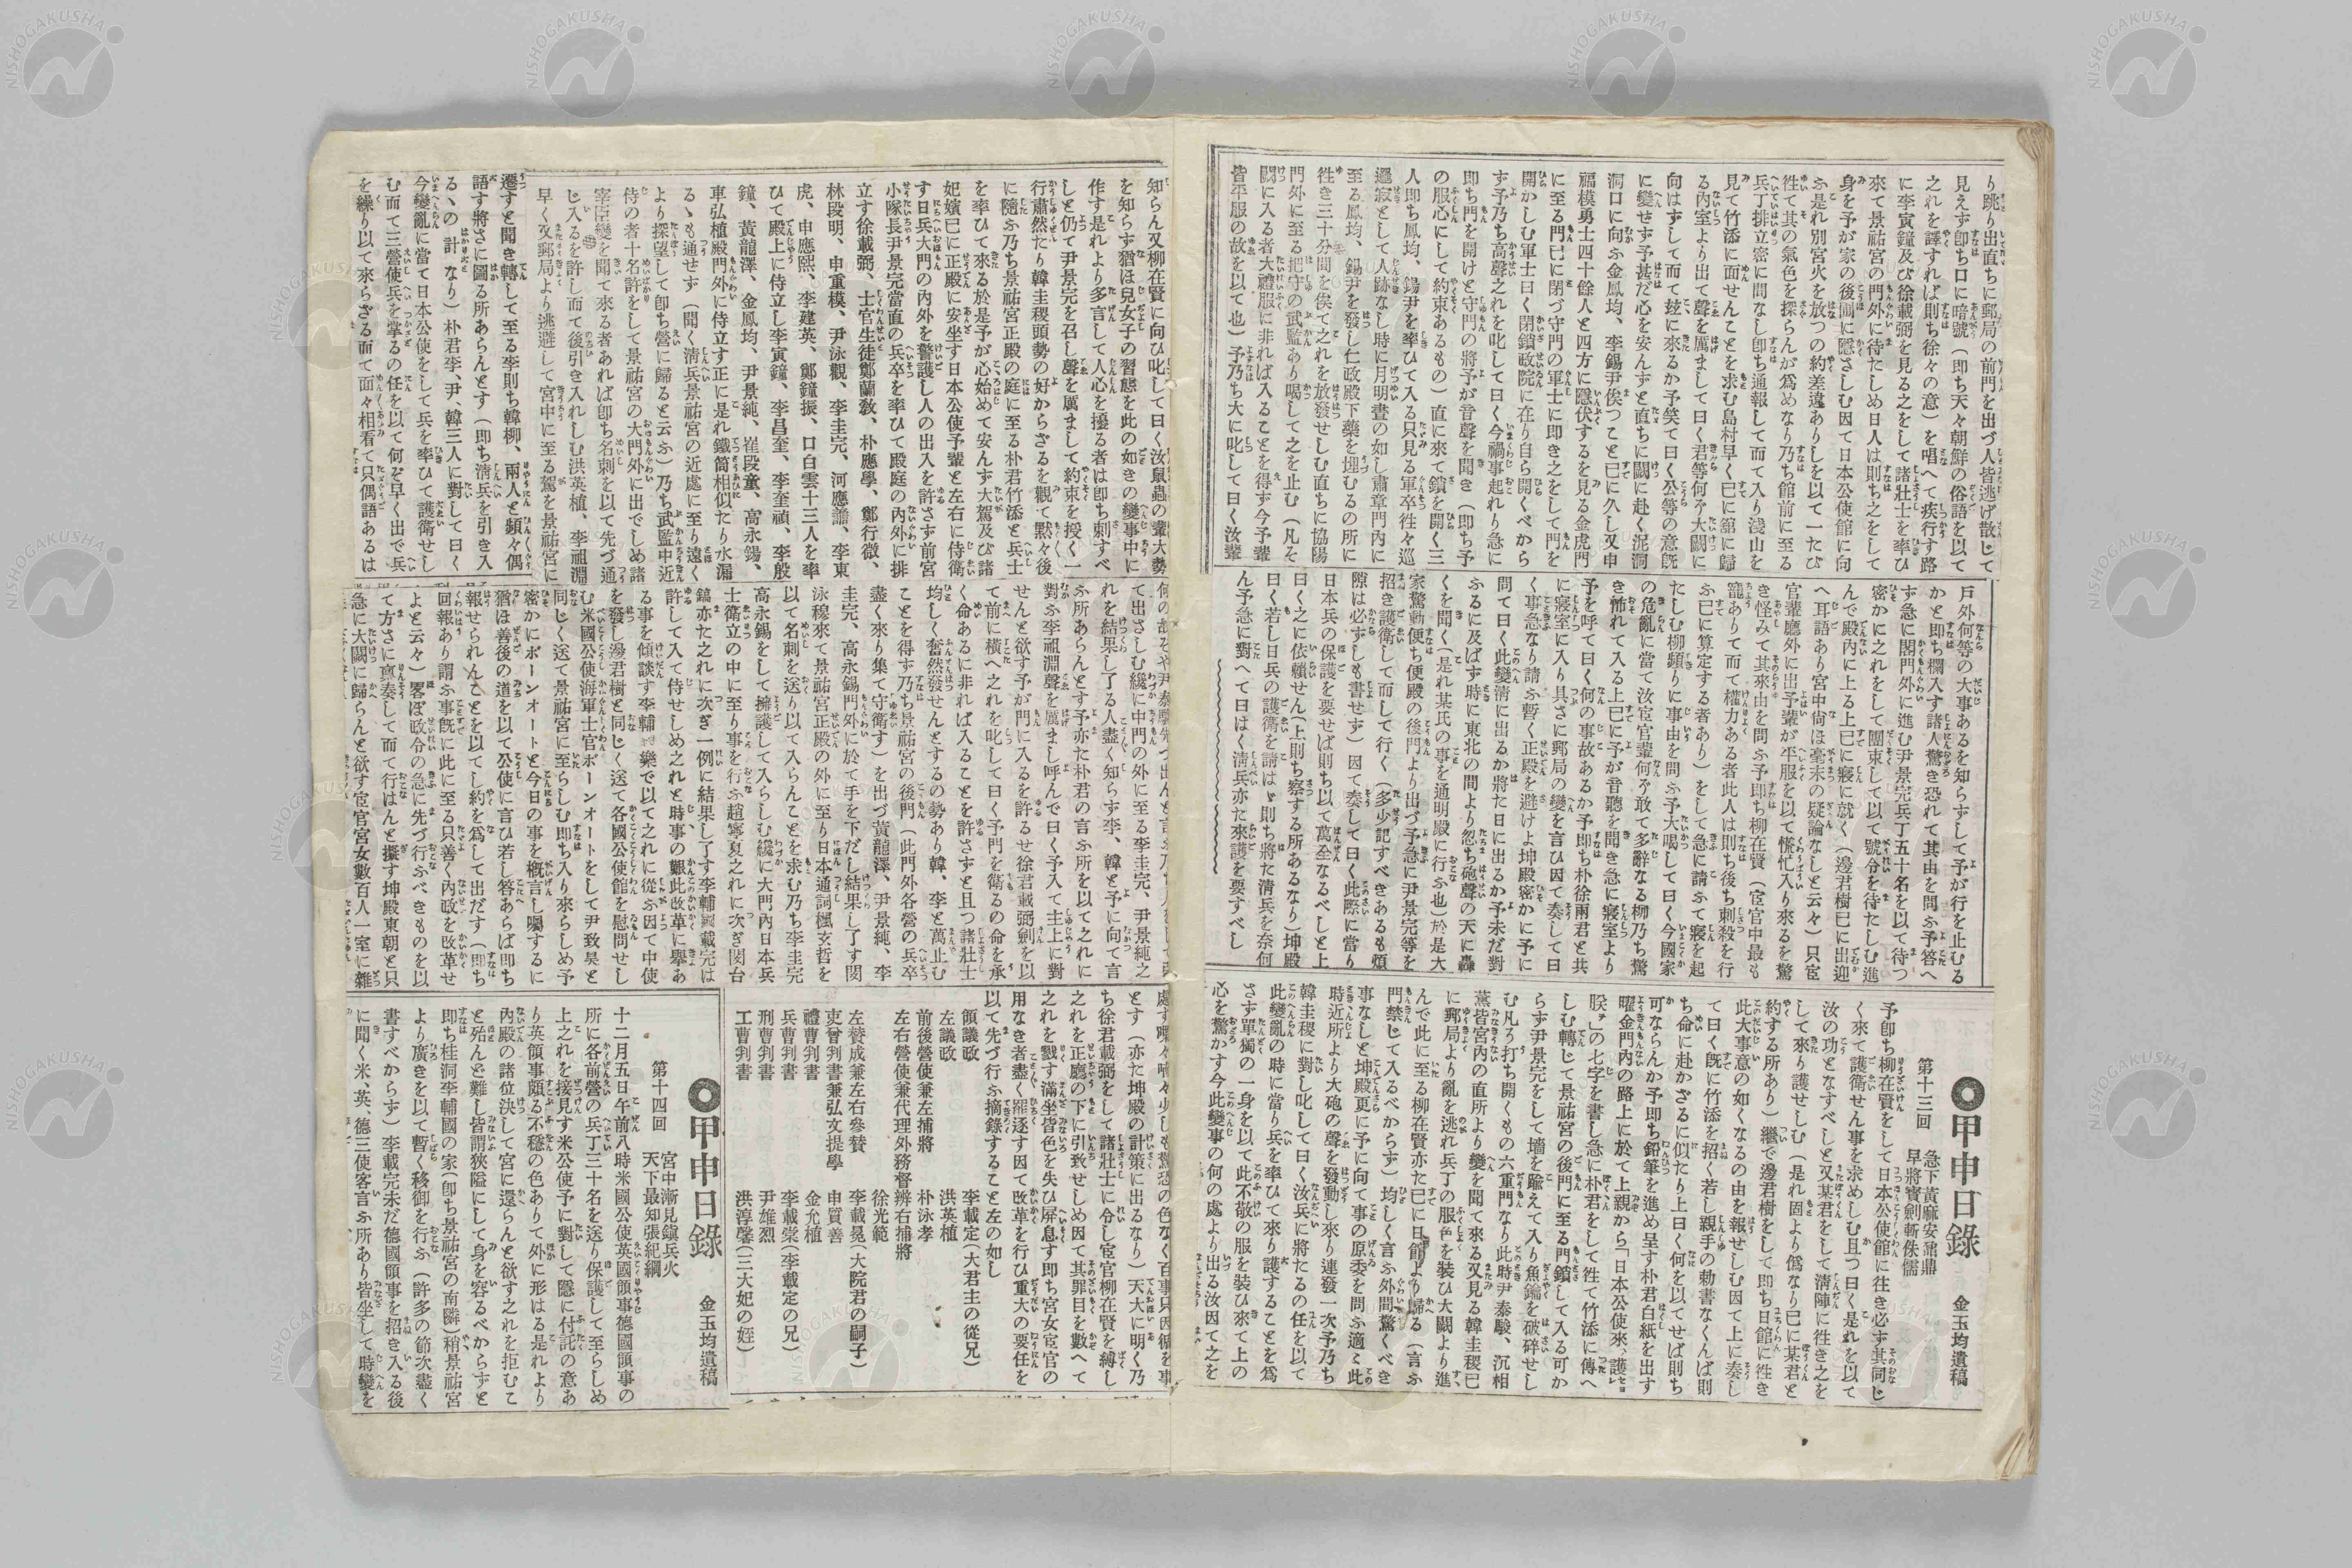 り跳り出直ちに郵局の前門を出づ人皆逃げ散じて
見えず卽ち口に暗號(卽ち天々朝鮮の俗語を以て
之れを譯すれば則ち徐々の意)を唱へて疾行す路
に李寅鐘及び徐載弼を見る之をして諸壯士を率ひ
來て景祐宮の門外に待たしめ日人は則ち之をして
身を予が家の後圃に隱さしむ因て日本公使館に向
ふ是れ別宮火を放つの約差違ありしを以て一たび
徃て其の氣色を探らんが爲めなり乃ち館前に至る
兵丁排立密に間なし卽ち通報して而て入り淺山を
見て竹添に面せんことを求む島村早く已に舘に歸
る內室より出て聲を厲まして曰く君等何ぞ大闕に
向はずして而て玆に來るか予笑て曰く公等の意旣
に變せず予甚だ心を安んずと直ちに闕に赴く泥洞
洞口に向ふ金鳳均、李錫尹俟つこと已に久し又申
福模勇士四十餘人と四方に隱伏するを見る金虎門
に至る門已に閉づ守門の軍士に卽き之をして門を
開かしむ軍士曰く閉鎖政院に在り自ら開くべから
ず予乃ち高聲之れを叱して曰く今禍事起れり急に
卽ち門を開けと守門の將予が音聲を聞き(卽ち予
の服心にして約束あるもの)直に來て鎖を開く三
人卽ち鳳均、錫尹を率ひて入る只見る軍卒徃々巡
邏寂として人跡なし時に月明晝の如し肅章門內に
至る鳳均、錫尹を發し仁政殿下藥を埋むるの所に
徃き三十分間を俟て之れを放發せしむ直ちに協陽
門外に至る把守の武監あり喝して之を止む(凡そ
闕に入る者大禮服に非れば入ることを得ず今予輩
皆平服の故を以て也)予乃ち大に叱して曰く汝輩
戶外何等の大事あるを知らずして予が行を止むる
かと卽ち欄入す諸人驚き恐れて其由を問ふ予答へ
ず急に閤門外に進む尹景完兵丁五十名を以て待つ
密かに之れをして團束して以て號令を待たしむ進
んで殿內に上る上已に寢に就く(邊君樹已に出迎
へ耳語あり宮中尙ほ毫末の疑論なしと云々)只宦
官輩廳外に出予輩が平服を以て慌忙入り來るを驚
き怪みて其來由を問ふ予卽ち柳在賢(宦官中最も
寵ありて而て權力ある者此人は則ち後ち刺殺を行
ふ已に算定する者あり)をして急に請ふて寢を起
たしむ柳頻りに事由を問ふ予大喝して曰く今國家
の危亂に當て汝宦官輩何ぞ敢て多辭なる柳乃ち驚
き怖れて入る上已に予が音聽を聞き急に寢室より
予を呼て曰く何の事故あるか予卽ち朴徐兩君と共
に寢室に入り具さに郵局の變を言ひ因て奏して曰
く事急なり請ふ暫く正殿を避けよ坤殿密かに予に
問て曰く此變淸に出るか將た日に出るか予未だ對
ふるに及ばず時に東北の間より忽ち砲聲の天に轟
くを聞く(是れ某氏の事を通明殿に行ふ也)於是大
家驚動便ち便殿の後門より出づ予急に尹景完等を
招き護衛して而して行く(多少記すべきあるも煩
隙は必ずしも書せず)因て奏して曰く此際に當り
日本兵の保護を要せば則ち以て萬全なるべしと上
曰く之に依賴せん(上則ち察する所あるなり)坤殿
曰く若し日兵の護衛を請はゞ則ち將た淸兵を奈何
ん予急に對へて日はく淸兵亦た來護を要すべし
甲申日錄 金玉均遺稿
第十三回 急下黃麻安鼐鼎
早將寳劍斬侏儒
予卽ち柳在賢をして日本公使館に往き必ず其同じ
く來て護衛せん事を求めしむ且つ曰く是れを以て
汝の功となすべしと又某君をして淸陣に徃き之を
して來り護せしむ(是れ固より僞なり已に某君と
約する所あり)繼で邊君樹をして卽ち日館に徃き
此大事意の如くなるの由を報せしむ因て上に奏し
て曰く旣に竹添を招く若し親手の勅書なくんば則
ち命に赴かざるに似たり上曰く何を以てせば則ち
可ならんか予卽ち鉛筆を進め呈す朴君白紙を出す
曜金門內の路上に於て上親から「日本公使來、護
朕」の七字を書し急に朴君をして徃て竹添に傳へ
しむ轉じて景祐宮の後門に至る門鎖して入る可か
らず尹景完をして墻を踰えて入り魚鑰を破碎せし
む凡う打ち開くもの六重門なり此時尹泰駿、沉相
薰皆宮內の直所より變を聞て來る又見る韓圭稷已
に郵局より亂を逃れ兵丁の服色を裝ひ大闕より進
んで此に至る柳在賢亦た已に日館より歸る(言ふ
門禁じて入るべからず)均しく言ふ外間驚くべき
事なしと坤殿更に予に向て事の原委を問ふ適ミ此
時近所より大砲の聲を發動し來り連發一次予乃ち
韓圭稷に對し叱して曰く汝兵に將たるの任を以て
此變亂の時に當り兵を率ひて來り護することを爲
さず單獨の一身を以て此不敬の服を裝ひ來て上の
心を驚かす今此變事の何の處より出る汝因て之を
知らん又柳在賢に向ひ叱して曰く汝鼠蟲の輩大勢
を知らず猶ほ兒女子の習態を此の如きの變事中に
作す是れより多言して人心を擾る者は卽ち刺すべ
しと仍て尹景完を召し聲を厲まして約束を授く一
行肅然たり韓圭稷頭勢の好からざるを觀て默々後
に隨ふ乃ち景祐宮正殿の庭に至る朴君竹添と兵士
を率ひて來る於是予が心始めて安んず大駕及び諸
妃嬪已に正殿に安坐す日本公使予輩と左右に侍衛
す日兵大門の內外を警護し人の出入を許さず前宮
小隊長尹景完當直の兵卒を率ひて殿庭の內外に排
立す徐載弼、士官生徒鄭蘭敎、朴應學、鄭行徵、
林段明、申重模、尹泳觀、李圭完、河應譱、李東
虎、申應熙、李建英、鄭鐘振、口白雲十三人を率
ひて殿上に侍立し李寅鐘、李昌奎、李奎禎、李殷
鐘、黃龍澤、金鳳均、尹景純、崔段童、高永錫、
車弘植殿門外に侍立す正に是れ鐵箭相似たり水漏
るゝも通せず(聞く淸兵景祐宮の近處に至り遠く
より探望して卽ち營に歸ると云ふ)乃ち武監中近
侍の者十名許をして景祐宮の大門外に出でしめ諸
宰臣變を聞て來る者あれば卽ち名刺を以て先づ通
じ入るを許し而て後引き入れしむ洪英植、李祖淵
早く又郵局より逃避して宮中に至る駕を景祐宮に
遷すと聞き轉して至る李則ち韓柳、兩人と頻々偶
語す將さに圖る所あらんとす(卽ち淸兵を引き入
るゝの計なり)朴君李、尹、韓三人に對して曰く
今變亂に當て日本公使をして兵を率ひて護衛せし
む而て三營使兵を掌るの任を以て何ぞ早く出で兵
を繰り以て來らざる而て面々相看て只偶語あるは
て出ださしむ纔に中門の外に至る李圭完、尹景純之
れを結果し了る人盡く知らず李、韓と予に向て言
ふ所あらんとす予亦た朴君の言ふ所を以て之れに
對ふ李祖淵聲を厲まし呼んで曰く予入て主上に對
せんと欲す予が門に入るを許るせ徐君載弼劍を以
て前に橫へ之れを叱して曰く予門を衛るの命を承
く命あるに非れば入ることを許さずと且つ諸壯士
均しく奮然發せんとするの勢あり韓、李と萬止む
ことを得ず乃ち景祐宮の後門(此門外各營の兵卒
盡く來り集て守衛す)を出づ黃龍澤、尹景純、李
圭完、高永錫門外に於て手を下だし結果し了す閔
泳穆來て景祐宮正殿の外に至り日本通詞楓玄哲を
以て名刺を送り以て入らんことを求む乃ち李圭完
高永錫をして擁護して入らしむ纔に大門內日本兵
士衛立の中に至り事を行ふ趙寧夏之れに次ぎ閔台
鎬亦た之れに次ぎ一例に結果し了す李輔國載完は
許して入て侍せしめ之れと時事の艱此改革に擧あ
る事を傾談す李輔國樂で以て之れに從ふ因て中使
を發し邊君樹と同じく送て各國公使館を慰問せし
む米國公使海軍士官ボーンオートをして尹致昊と
同じく送て景祐宮に至らしむ卽ち入り來らしめ予
密かにボーンオートと今日の事を槪言し囑するに
猶ほ善後の道を以て公使に言ひ若し答あらば卽ち
報せられんことを以てし約を爲して出だす(卽ち
回報あり謂ふ事旣に此に至る只善く內政を改革せ
よと云々)畧ぼ政令の急に先づ行ふべきものを以
て方さに稟奏して而て行はんと擬す坤殿東朝と只
急に大闕に歸らんと欲す宦官宮女數百人一室に雜
とす(亦た坤殿の計策に出るなり)天大に明く乃
ち徐君載弼をして諸壯士に令し宦官柳在賢を縛し
之れを正廳の下に引致せしめ因て其罪目を數へて
之れを戮す滿坐皆色を失ひ屏息す卽ち宮女宦官の
用なき者盡く罷逐す因て改革を行ひ重大の要任を
以て先づ行ふ摘錄すること左の如し
領議政 李載定(大君主の從兄)
左議政 洪英植
前後營使兼左捕將 朴泳孝
左右營使兼代理外務督辨右捕將
徐光範
左贊成兼左右參贊 李載冕(大院君の嗣子)
吏曾判書兼弘文提學 申質善
禮曹判書 金允植
兵曹判書 李載棠(李載定の兄)
刑曹判書 尹雄烈
工曹判書 洪淳馨(三大妃の姪)
甲申日錄 金玉均遺稿
第十四回 宮中漸見鎭兵火
天下最知張紀綱
十二月五日午前八時米國公使英國領事德國領事の
所に各前營の兵丁三十名を送り保護して至らしめ
上之れを接見す米公使予に對して隱に付託の意あ
り英領事頗る不穩の色ありて外に形はる是れより
內殿の諸位決して宮に還らんと欲す之れを拒むこ
と殆んど難し皆謂狹隘にして身を容るべからずと
卽ち桂洞李輔國の家(卽ち景祐宮の南隣)稍景祐宮
より廣きを以て暫く移御を行ふ(許多の節次盡く
書すべからず)李載完未だ德國領事を招き入る後
に聞く米、英、德三使客言ふ所あり皆坐して時變を